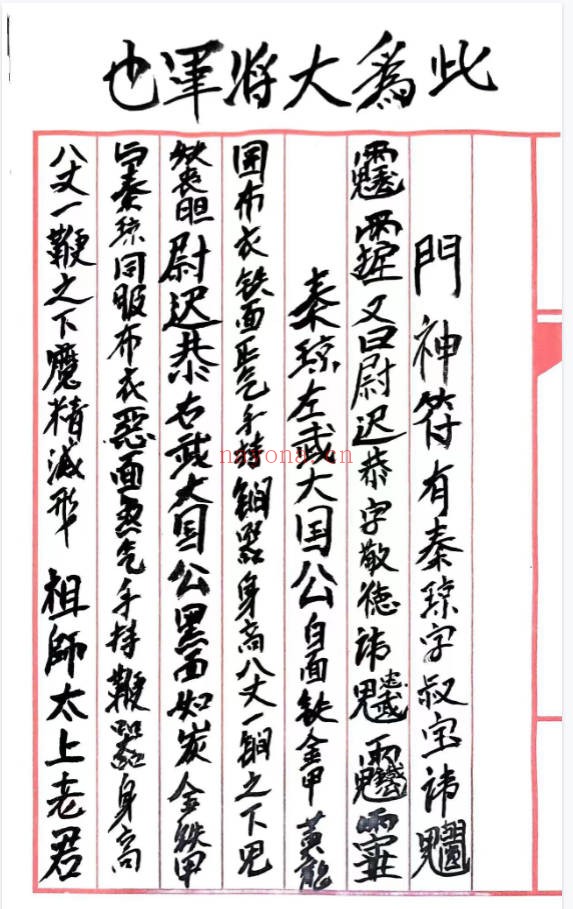 此爲大將軍也
門神符有秦琼字叔宝讳
又曰尉迟恭字敬德讳
秦琼左武大国公白面铁金甲黄龍
国布衣铁面正气手持锏器身高八丈一锏之下鬼
妖丧胆尉迟恭右武大国公黑面如炭金铁甲
与秦琼同服布衣惡面煞气手持鞭器身高
八丈一鞭之下魔精滅形 祖師太上老君
nayona.cn